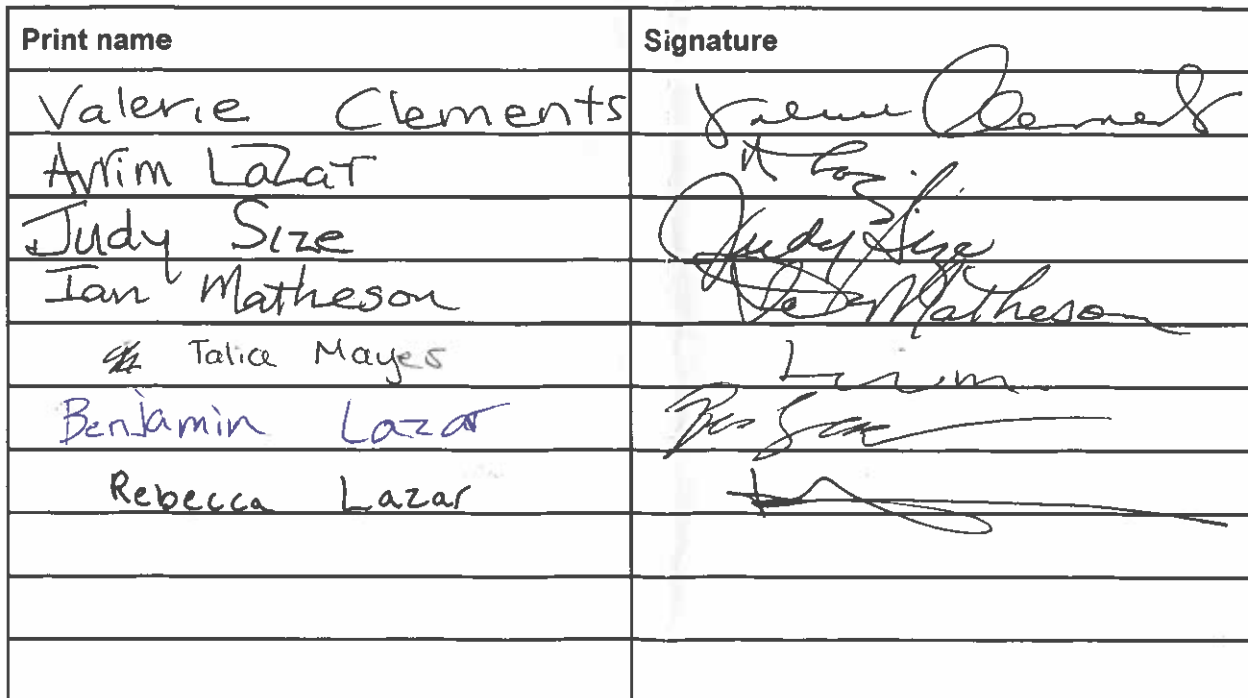 Print name Signature
Valerie Clements Valerie Clements
Avrim Lazar
Judy Size Judy Size
Ian Matheson Matheson
Talia Mayes
Benjamin Lazar Ben
Rebecca Lazar